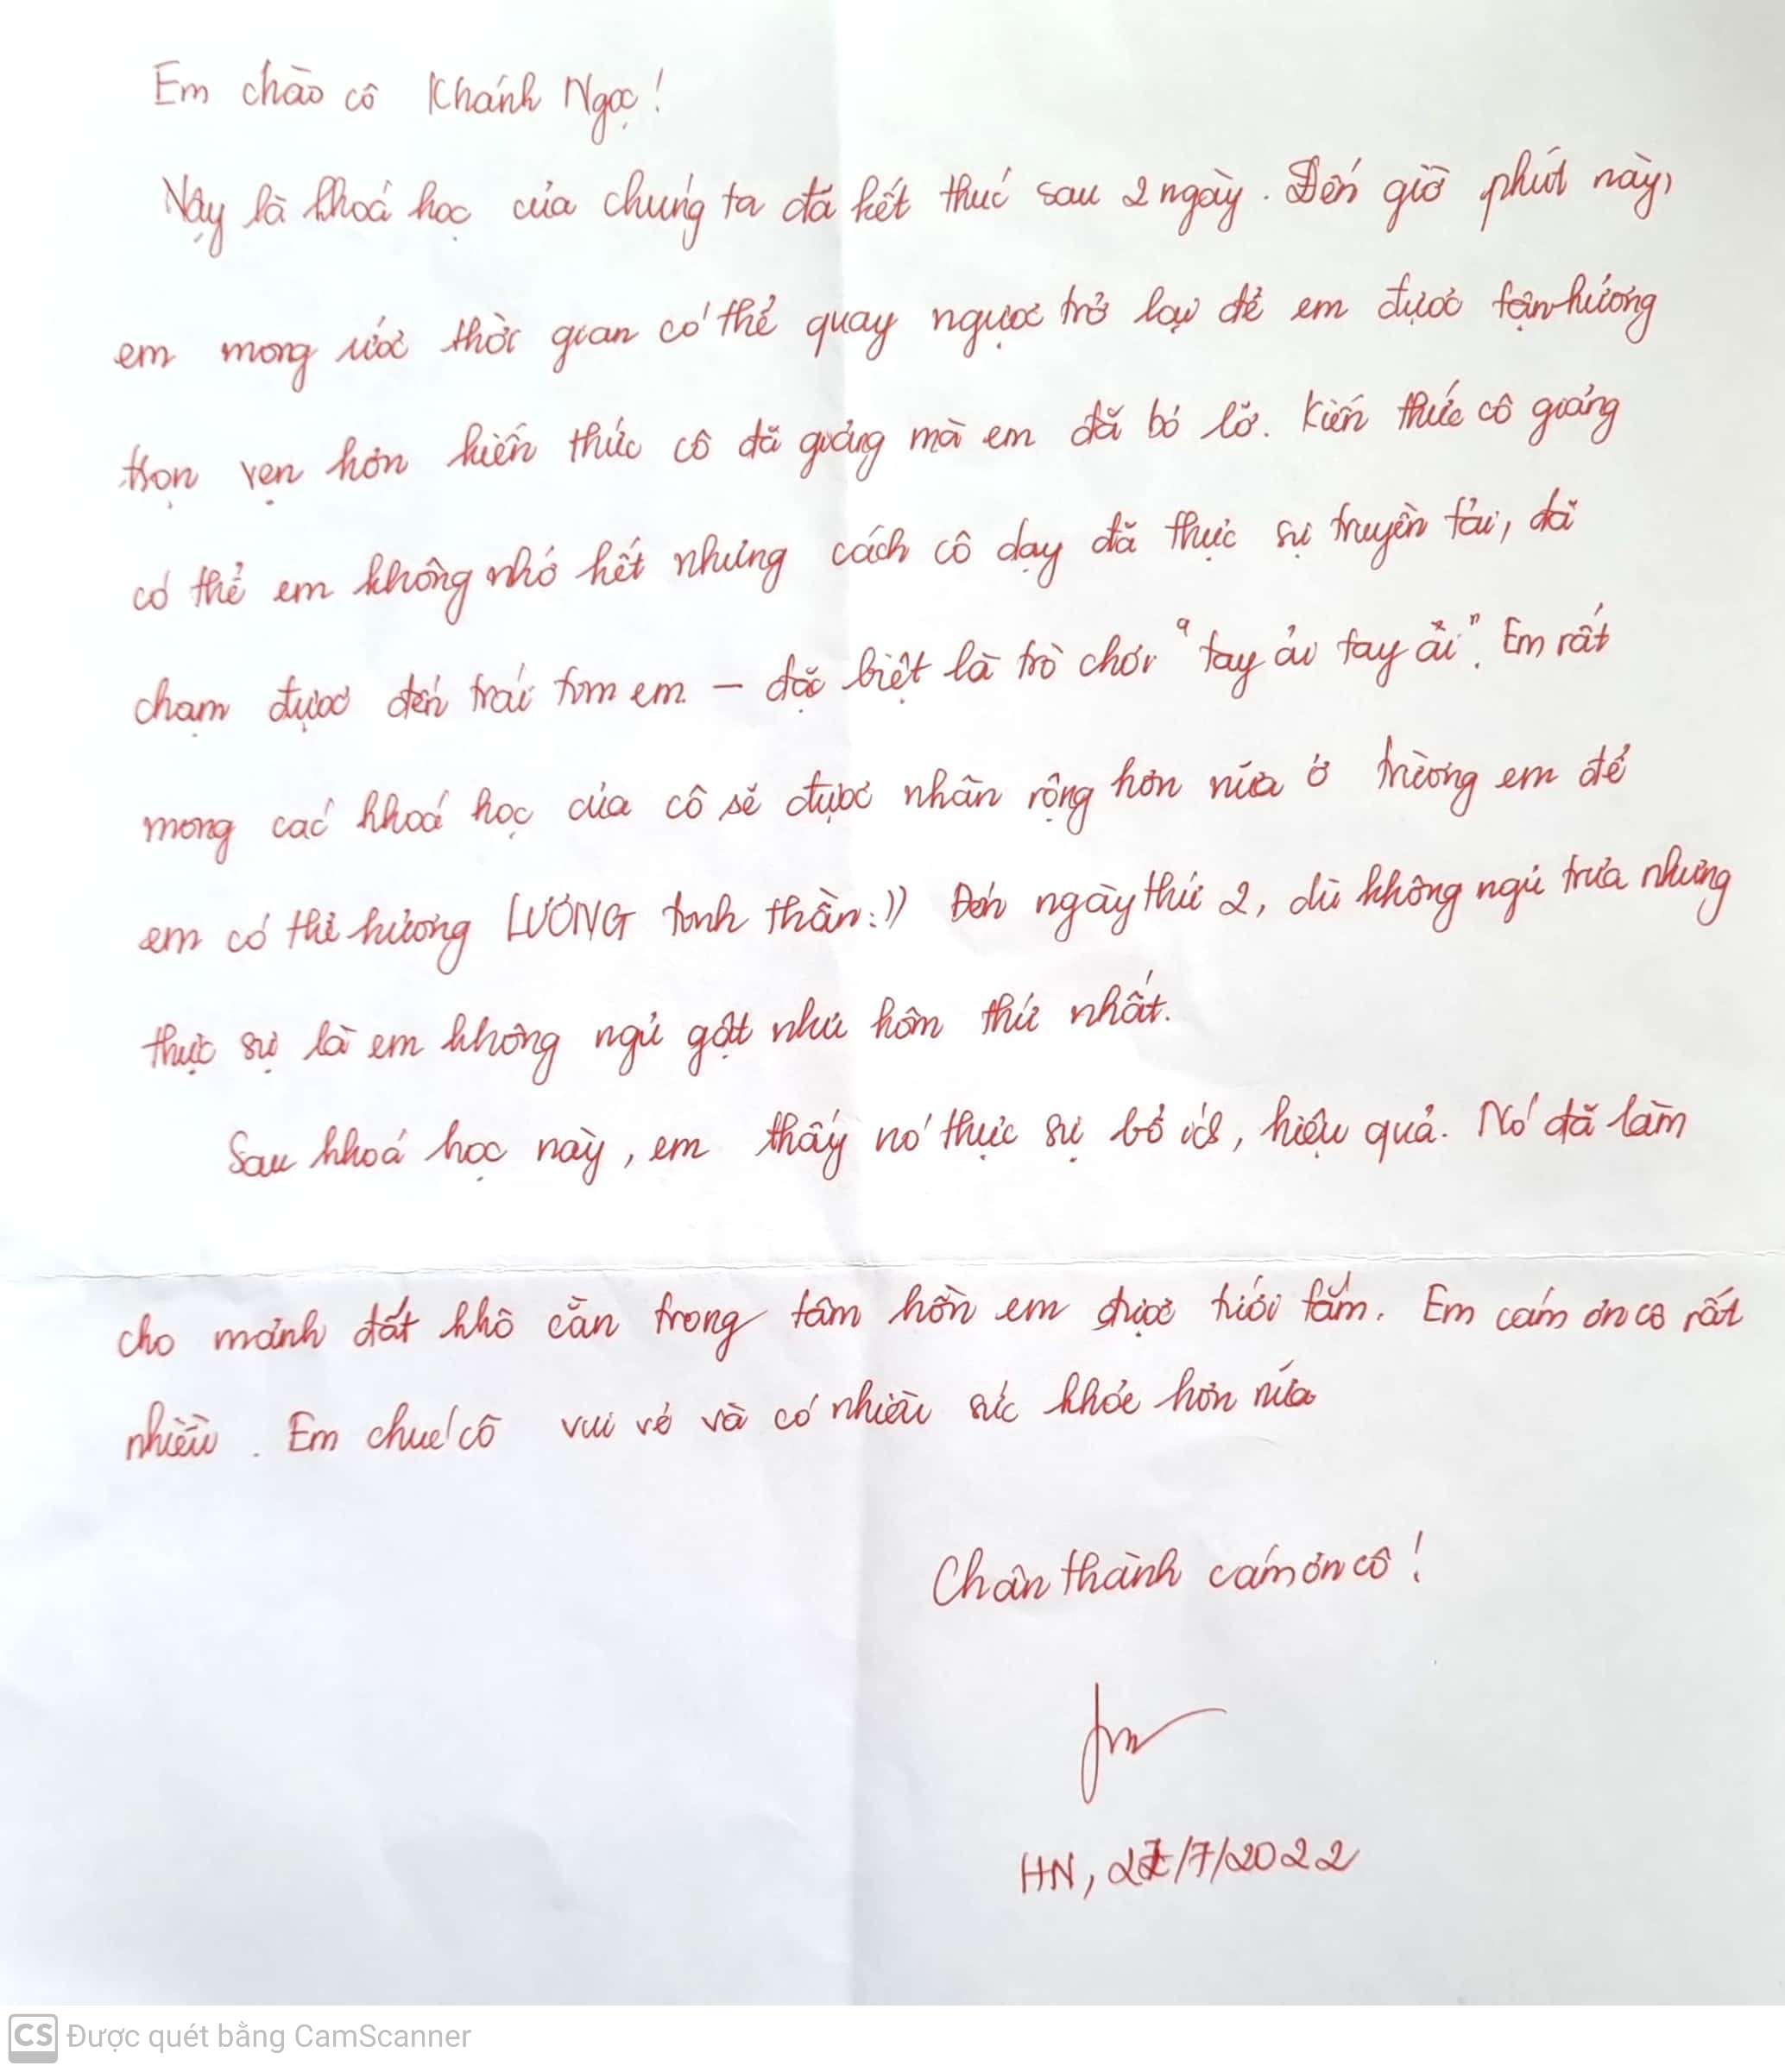 Em chào cô Khánh Ngọc!
Vậy là khoá học của chúng ta đã kết thúc sau 2 ngày. Đến giờ phút này,
em mong ước thời gian có thể quay ngược trở lại để em được tận hưởng
trọn vẹn hơn kiến thức cô đã giảng mà em đã bỏ lỡ. Kiến thức cô giảng
có thể em không nhớ hết nhưng cách cô dạy đã thực sự truyền tải, đã
chạm được đến trái tim em - đặc biệt là trò chơi "tay ải tay ải". Em rất
mong các khoá học của cô sẽ được nhân rộng hơn nữa ở trường em để
em có thể hưởng LƯƠNG tinh thần :)) Đến ngày thứ 2, dù không ngủ trưa nhưng
thực sự là em không ngủ gật như hôm thứ nhất.
Sau khoá học này, em thấy nó thực sự bổ ích, hiệu quả. Nó đã làm
cho mảnh đất khô cằn trong tâm hồn em được tưới tắm. Em cám ơn cô rất
nhiều. Em chúc cô vui vẻ và có nhiều sức khỏe hơn nữa
Chân thành cám ơn cô!
HN, /7/2022
CS Được quét bằng CamScanner